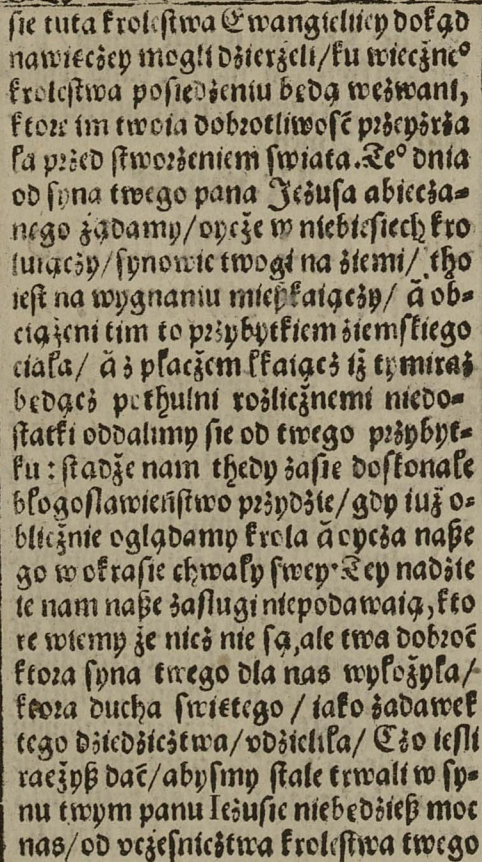 sie tuta krolestwa Ewangieliiey dokąd
nawiecżey mogli dżierżeli/ku wiecżne°
krolestwa posiedzeniu będą weżwani,
ktore im twoia dobrotliwosć prżeyżrża
ła przed stworżeniem swiata. Te° dnia
od syna twego pana Jeżusa abiecża⸗
nego żądamy/oycże w niebiesiech kro
luiączy/synowie twogi na żiemi/ tho
iest na wygnaniu mießkaiącży/ ā ob⸗
ciążeni tim to przybytkiem żiemskiego
ciała/ ā ż płacżem łkaiącż iż tymiraż
będącż pethulni rożlicżnemi niedo⸗
statki oddalimy sie od twego przybyt⸗
ku : stadże nam thedy żasie doskonałe
błogosławieństwo przydżie/gdy iuż o⸗
blicżnie oglądamy krola ā oycża naße
go w okrasie chwały swey. Tey nadżie
ie nam naße żasługi niepodawaią, kto
re wiemy że nicż nie są, ale twa dobroć
ktora syna twego dla nas wyłożyła/
ktora ducha swietego / iako żadawek
tego dżiedżicżtwa/vdżieliła/ Cżo iesli
racżyß dać/abysmy stale trwali w sy⸗
nu twym panu Jeżusie niebędżieß moc
nas/od vcżesnicżtwa krolestwa twego